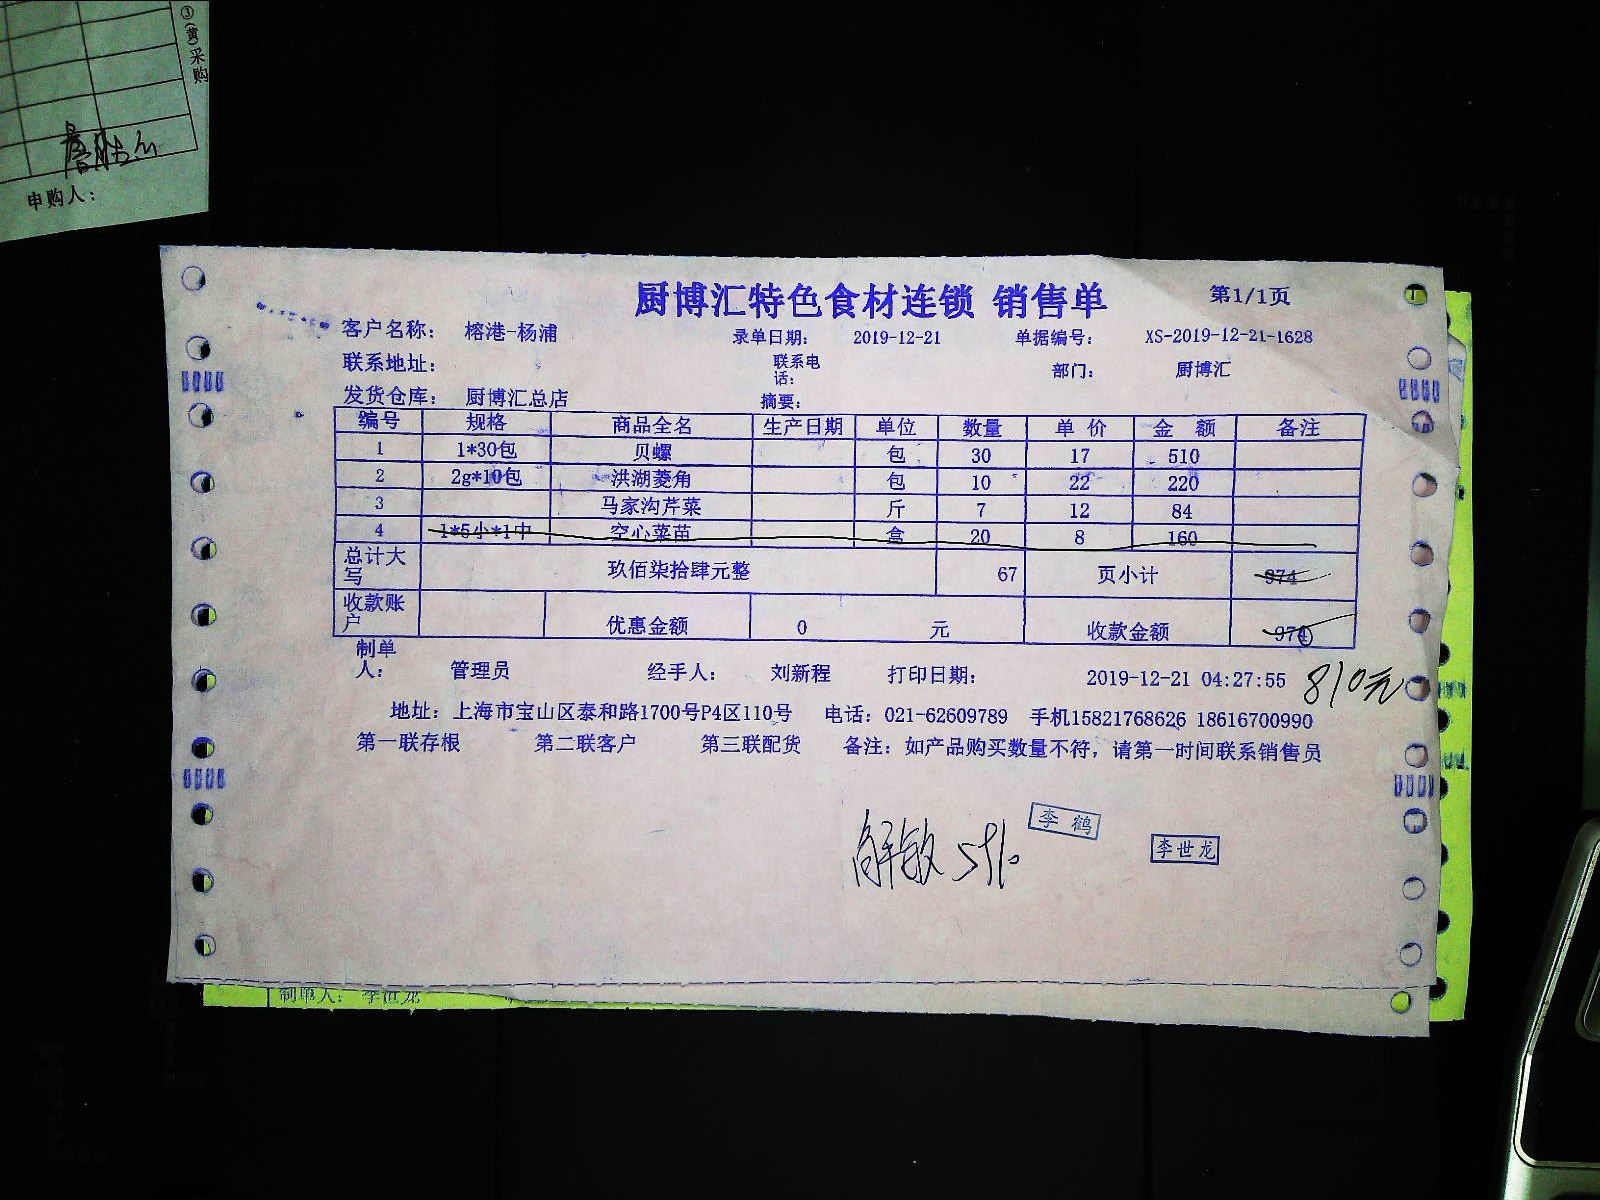 ③(黄)采购
申购人：
厨博汇特色食材连锁 销售单
第1/1页
客户名称： 榕港-杨浦 录单日期： 2019-12-21 单据编号： XS-2019-12-21-1628
联系地址： 联系电话： 部门： 厨博汇
发货仓库： 厨博汇总店 摘要：
编号 规格 商品全名 生产日期 单位 数量 单 价 金 额 备注
1 1*30包 贝螺 包 30 17 510
2 2g*10包 洪湖菱角 包 10 22 220
3 马家沟芹菜 斤 7 12 84
4 1*5小*1中 空心菜苗 盒 20 8 160
总计大写 玖佰柒拾肆元整 67 页小计 974
收款账户 优惠金额 0 元 收款金额 974
制单人： 管理员 经手人： 刘新程 打印日期： 2019-12-21 04:27:55 810元
地址：上海市宝山区泰和路1700号P4区110号 电话：021-62609789 手机15821768626 18616700990
第一联存根 第二联客户 第三联配货 备注：如产品购买数量不符，请第一时间联系销售员
李鹤
李世龙
制单人： 李世龙